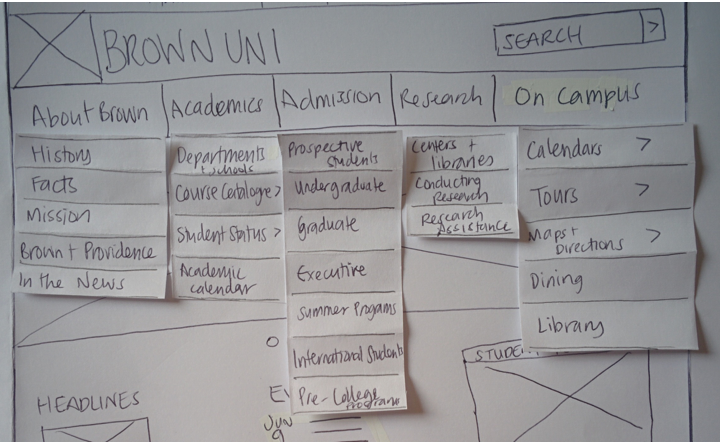 BROWN UNI
SEARCH >
About Brown
Academics
Admission
Research
On Campus
History
Facts
Mission
Brown + Providence
In the News
Departments
+ schools
Course Catalogue >
Student Status >
Academic
calendar
Prospective
Students
Undergraduate
Graduate
Executive
Summer Programs
International Students
Pre-College
Programs
Centers +
libraries
Conducting
Research
Research
Assistance
Calendars >
Tours >
Maps +
Directions >
Dining
Library
HEADLINES
JUN
9